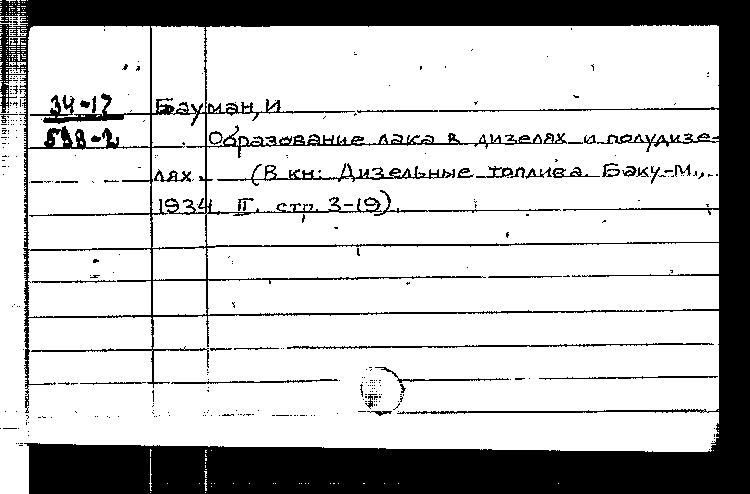 34-17 Бауман, И
538-2 Образование лака в дизелях и полудизе-
лях. (В кн: Дизельные топлива. Баку-М.,
1934 II. стр. 3-19).